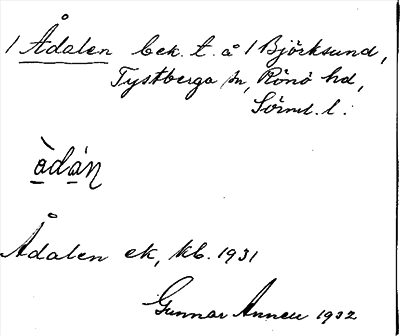 / Ådalen bek. t. å / Björksund,
Tystberga sn, Rönö hd,
Sörml. l.
àdán
Ådalen ek, kb. 1931
Gunnar Annell 1932